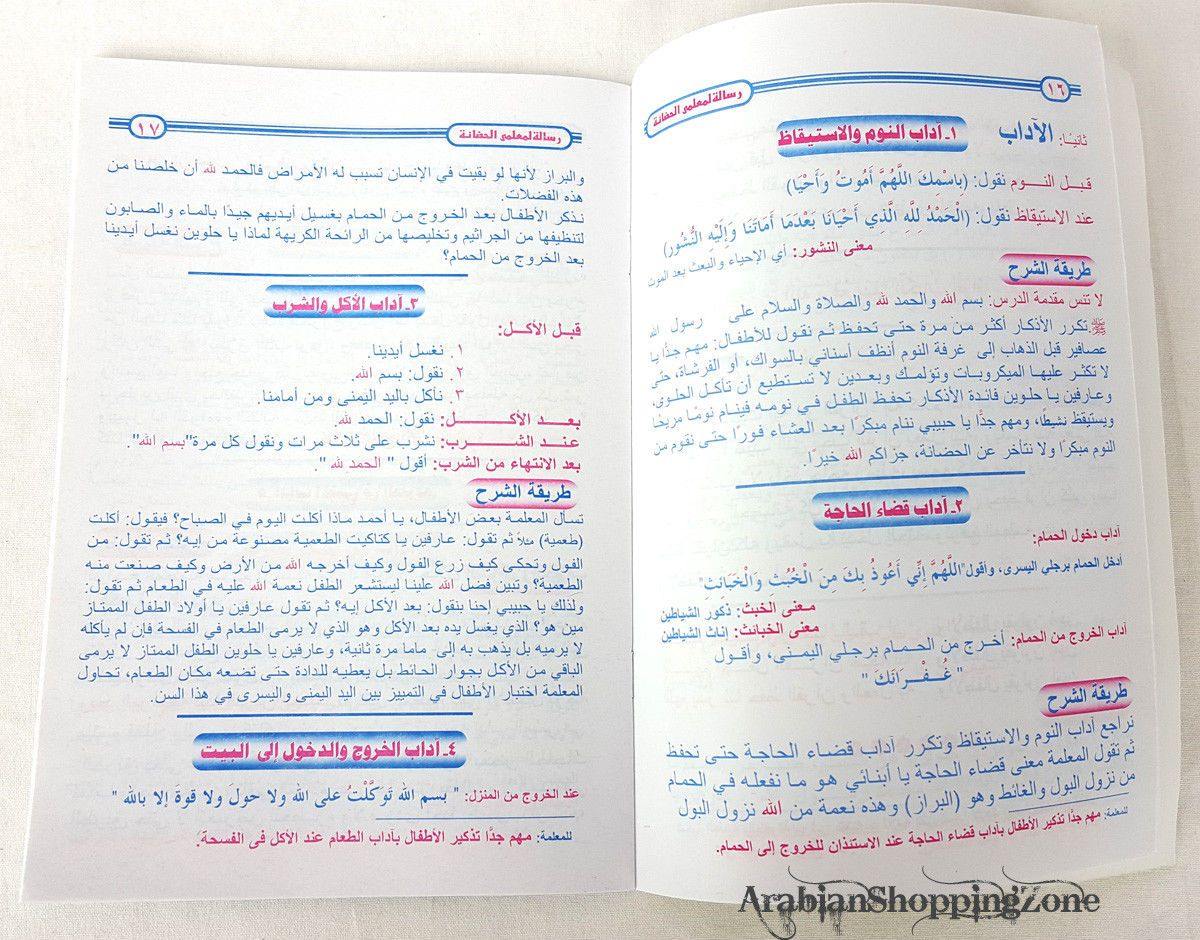 ١٦
رسالة لمعلمى الحضانة
ثانيًا: الآداب
١ـ آداب النوم والاستيقاظ
قبل النوم نقول: (بِاسْمِكَ اللَّهُمَّ أَمُوتُ وَأَحْيَا)
عند الاستيقاظ نقول: (الْحَمْدُ لِلَّهِ الَّذِي أَحْيَانَا بَعْدَمَا أَمَاتَنَا وَإِلَيْهِ النُّشُور)
معنى النشور: أي الإحياء والبعث بعد الموت
طريقة الشرح
لا تنس مقدمة الدرس: بسم الله والحمد لله والصلاة والسلام على رسول الله
ﷺ تكرر الأذكار أكثر من مرة حتى تحفظ ثم نقول للأطفال: مهم جدًّا يا
عصافير قبل الذهاب إلى غرفة النوم أنظف أسناني بالسواك، أو الفرشاة، حتى
لا تكثر عليها الميكروبات وتؤلمك وبعدين لا تستطيع أن تأكل الحلوى،
وعارفين يا حلوين فائدة الأذكار تحفظ الطفل في نومه فينام نومًا مريحًا
ويستيقظ نشيطًا، ومهم جدًّا يا حبيبي ننام مبكرًا بعد العشاء فورًا حتى نقوم من
النوم مبكرًا ولا نتأخر عن الحضانة، جزاكم الله خيرًا.
٢ـ آداب قضاء الحاجة
آداب دخول الحمام:
أدخل الحمام برجلي اليسرى، وأقول"اللَّهُمَّ إِنِّي أَعُوذُ بِكَ مِنَ الْخُبُثِ وَالْخَبَائِثِ"
معنى الخبث: ذكور الشياطين
معنى الخبائث: إناث الشياطين
آداب الخروج من الحمام: أخرج من الحمام برجلي اليمنى، وأقول
" غُفْرَانَكَ "
طريقة الشرح
نراجع آداب النوم والاستيقاظ وتكرر آداب قضاء الحاجة حتى تحفظ
ثم تقول المعلمة معنى قضاء الحاجة يا أبنائي هو ما نفعله في الحمام
من نزول البول والغائط وهو (البراز) وهذه نعمة من الله نزول البول
للمعلمة: مهم جدًّا تذكير الأطفال بآداب قضاء الحاجة عند الاستئذان للخروج إلى الحمام.
رسالة لمعلمى الحضانة
١٧
والبراز لأنها لو بقيت في الإنسان تسبب له الأمراض فالحمد لله أن خلصنا من
هذه الفضلات.
نذكر الأطفال بعد الخروج من الحمام بغسيل أيديهم جيدًا بالماء والصابون
لتنظيفها من الجراثيم وتخليصها من الرائحة الكريهة لماذا يا حلوين نغسل أيدينا
بعد الخروج من الحمام؟
٣ـ آداب الأكل والشرب
قبل الأكل:
١. نغسل أيدينا.
٢. نقول: بسم الله.
٣. نأكل باليد اليمنى ومن أمامنا.
بعد الأكــــل: نقول: الحمد لله.
عند الشـــرب: نشرب على ثلاث مرات ونقول كل مرة"بسم الله".
بعد الانتهاء من الشرب: أقول " الحمد لله ".
طريقة الشرح
تسأل المعلمة بعض الأطفال، يا أحمد ماذا أكلت اليوم في الصباح؟ فيقول: أكلت
(طعمية) مثلاً ثم تقول: عارفين يا كتاكيت الطعمية مصنوعة من إيه؟ ثم تقول: من
الفول وتحكى كيف زرع الفول وكيف أخرجه الله من الأرض وكيف صنعت منه
الطعمية؟ وتبين فضل الله علينا ليستشعر الطفل نعمة الله عليه في الطعام ثم تقول:
ولذلك يا حبيبي إحنا بنقول: بعد الأكل إيه؟ ثم تقول عارفين يا أولاد الطفل الممتاز
مين هو؟ الذي يغسل يده بعد الأكل وهو الذي لا يرمى الطعام في الفسحة فإن لم يأكله
لا يرميه بل يذهب به إلى ماما مرة ثانية، وعارفين يا حلوين الطفل الممتاز لا يرمى
الباقي من الأكل بجوار الحائط بل يعطيه للدادة حتى تضعه مكان الطعام، تحاول
المعلمة اختبار الأطفال في التمييز بين اليد اليمنى واليسرى في هذا السن.
٤ـ آداب الخروج والدخول إلى البيت
عند الخروج من المنزل: " بسم الله تَوَكَّلْتُ على الله ولا حولَ ولا قوةَ إلا بالله "
للمعلمة: مهم جدًّا تذكير الأطفال بآداب الطعام عند الأكل فى الفسحة.
ArabianShoppingZone